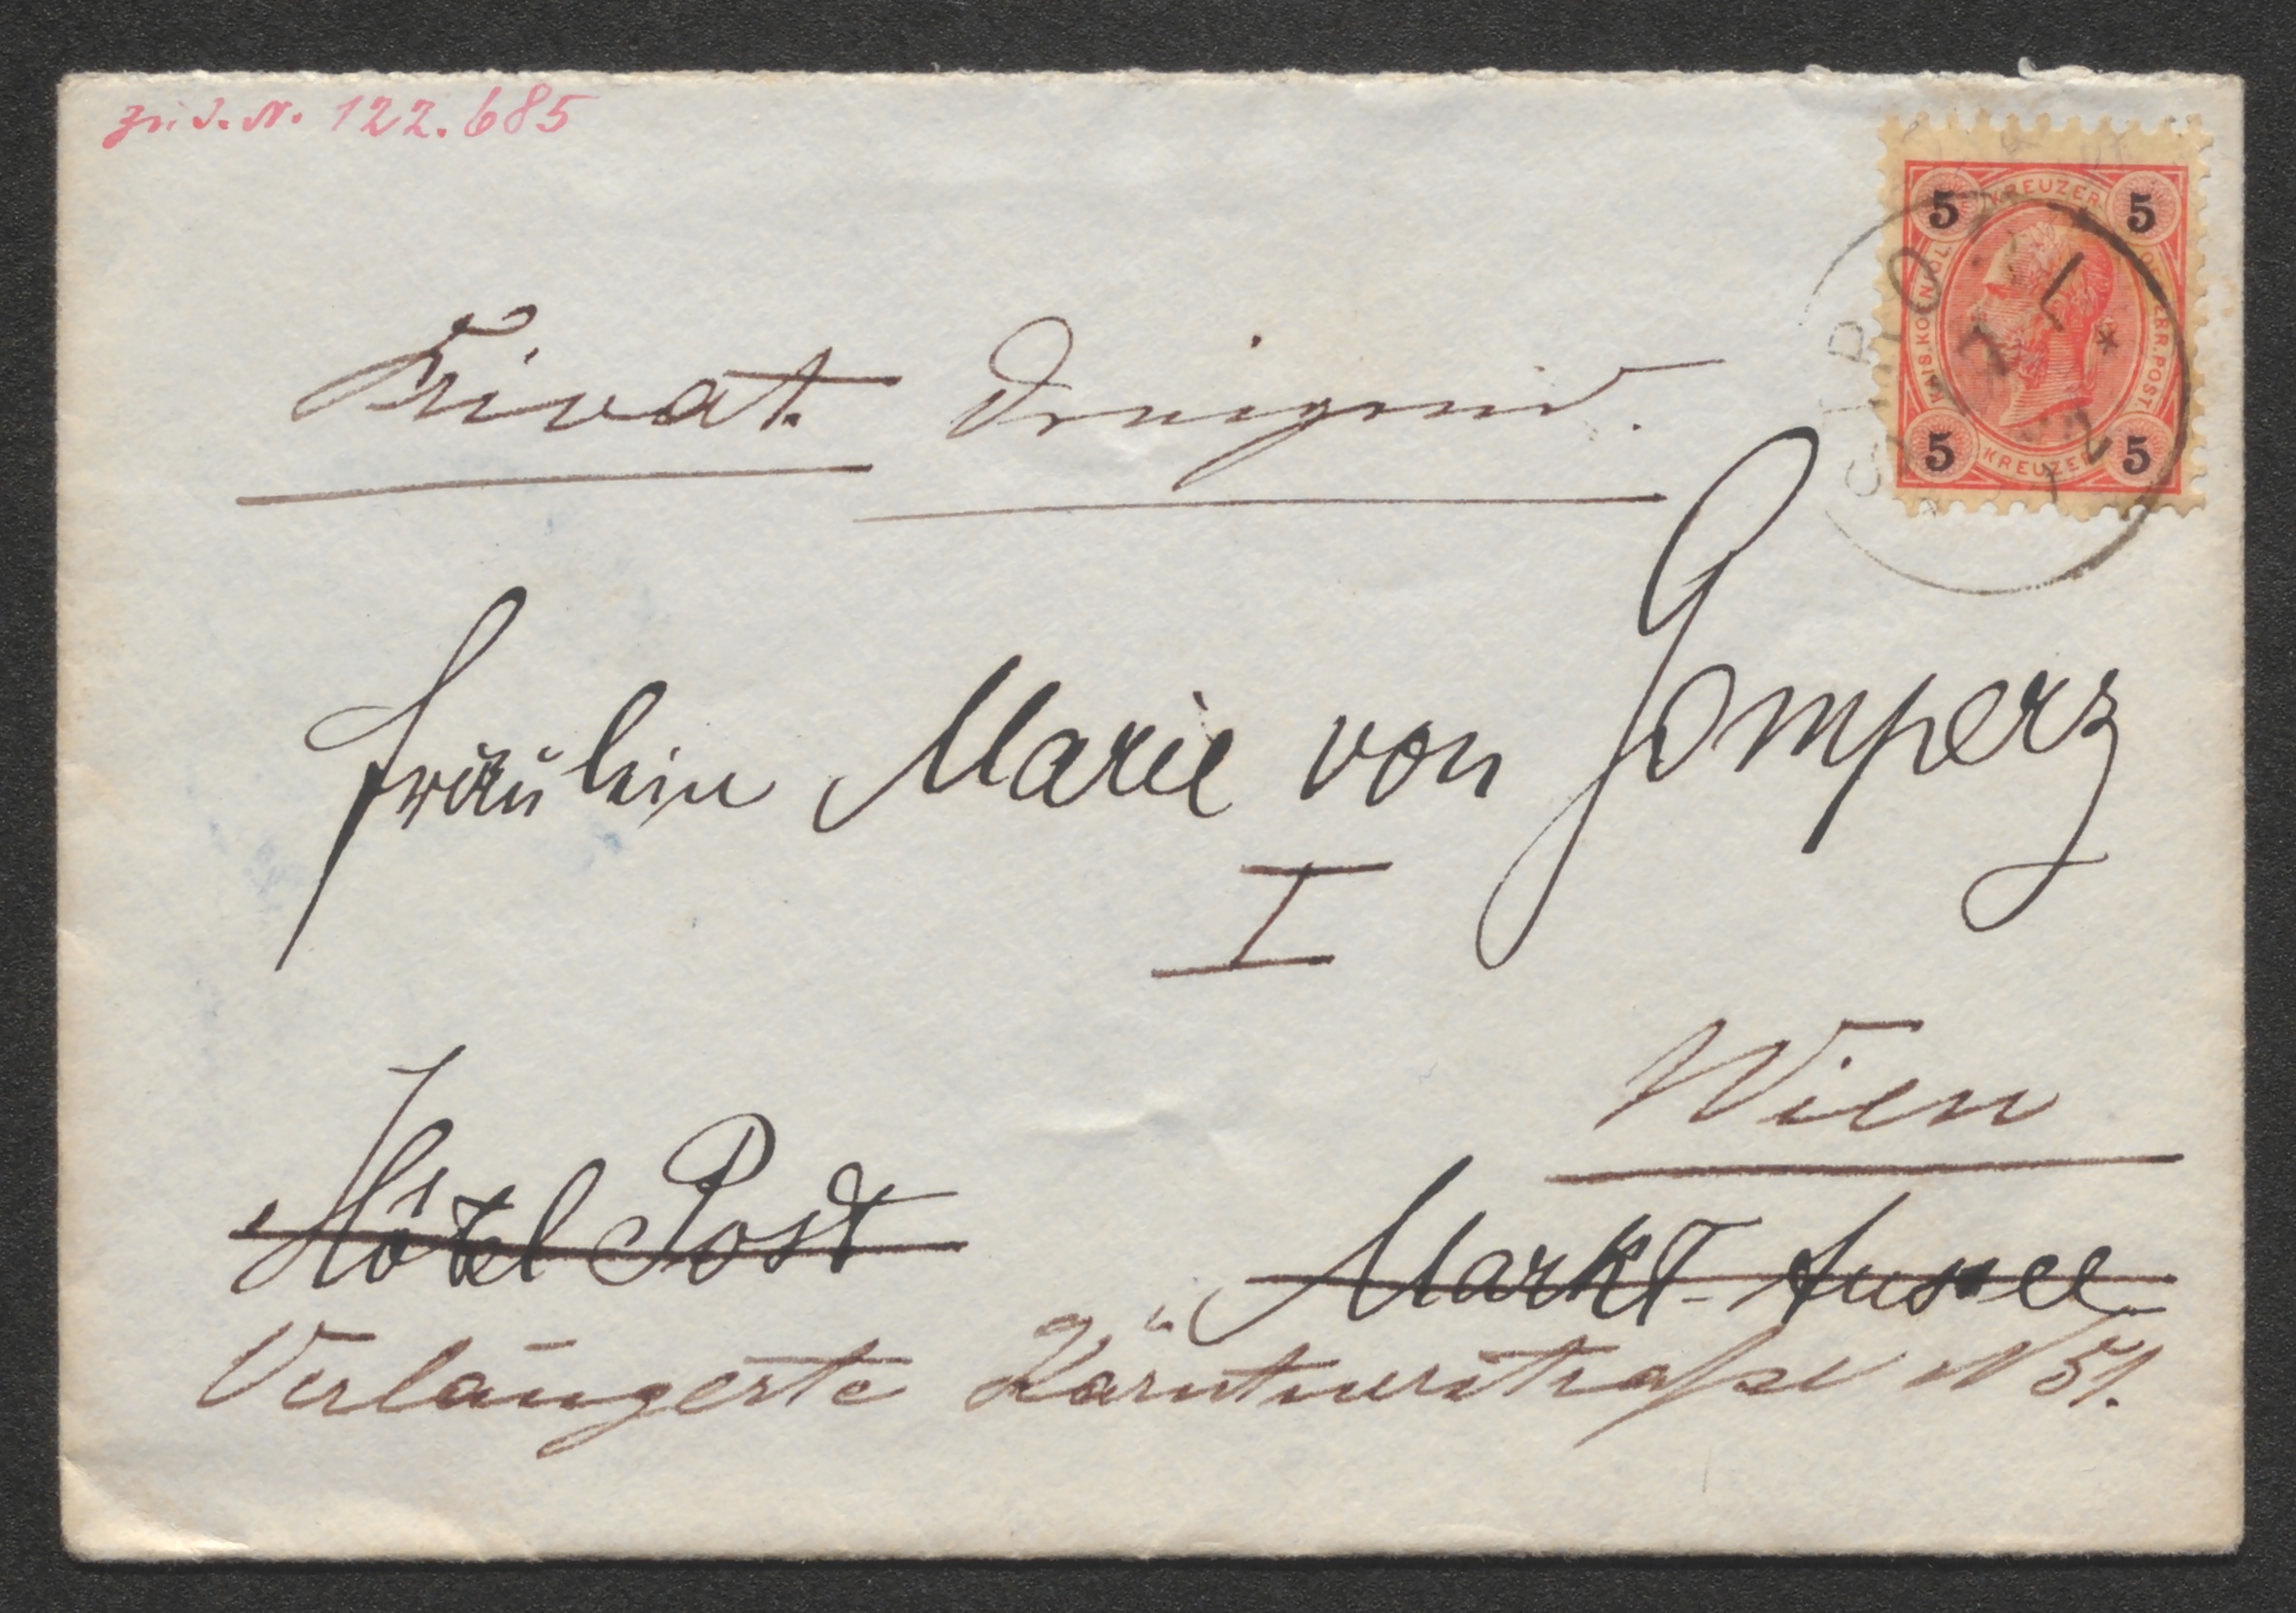 zu I. N. 122.685
5 KREUZER 5
KAIS. KOENIGL. OESTERR. POST
5 KREUZER 5
Privat. Dringend.
Fräulein Marie von Gomperz
I
Wien
Hôtel Post
Markt-Aussee
Verlängerte Kärntnerstraße N 51.